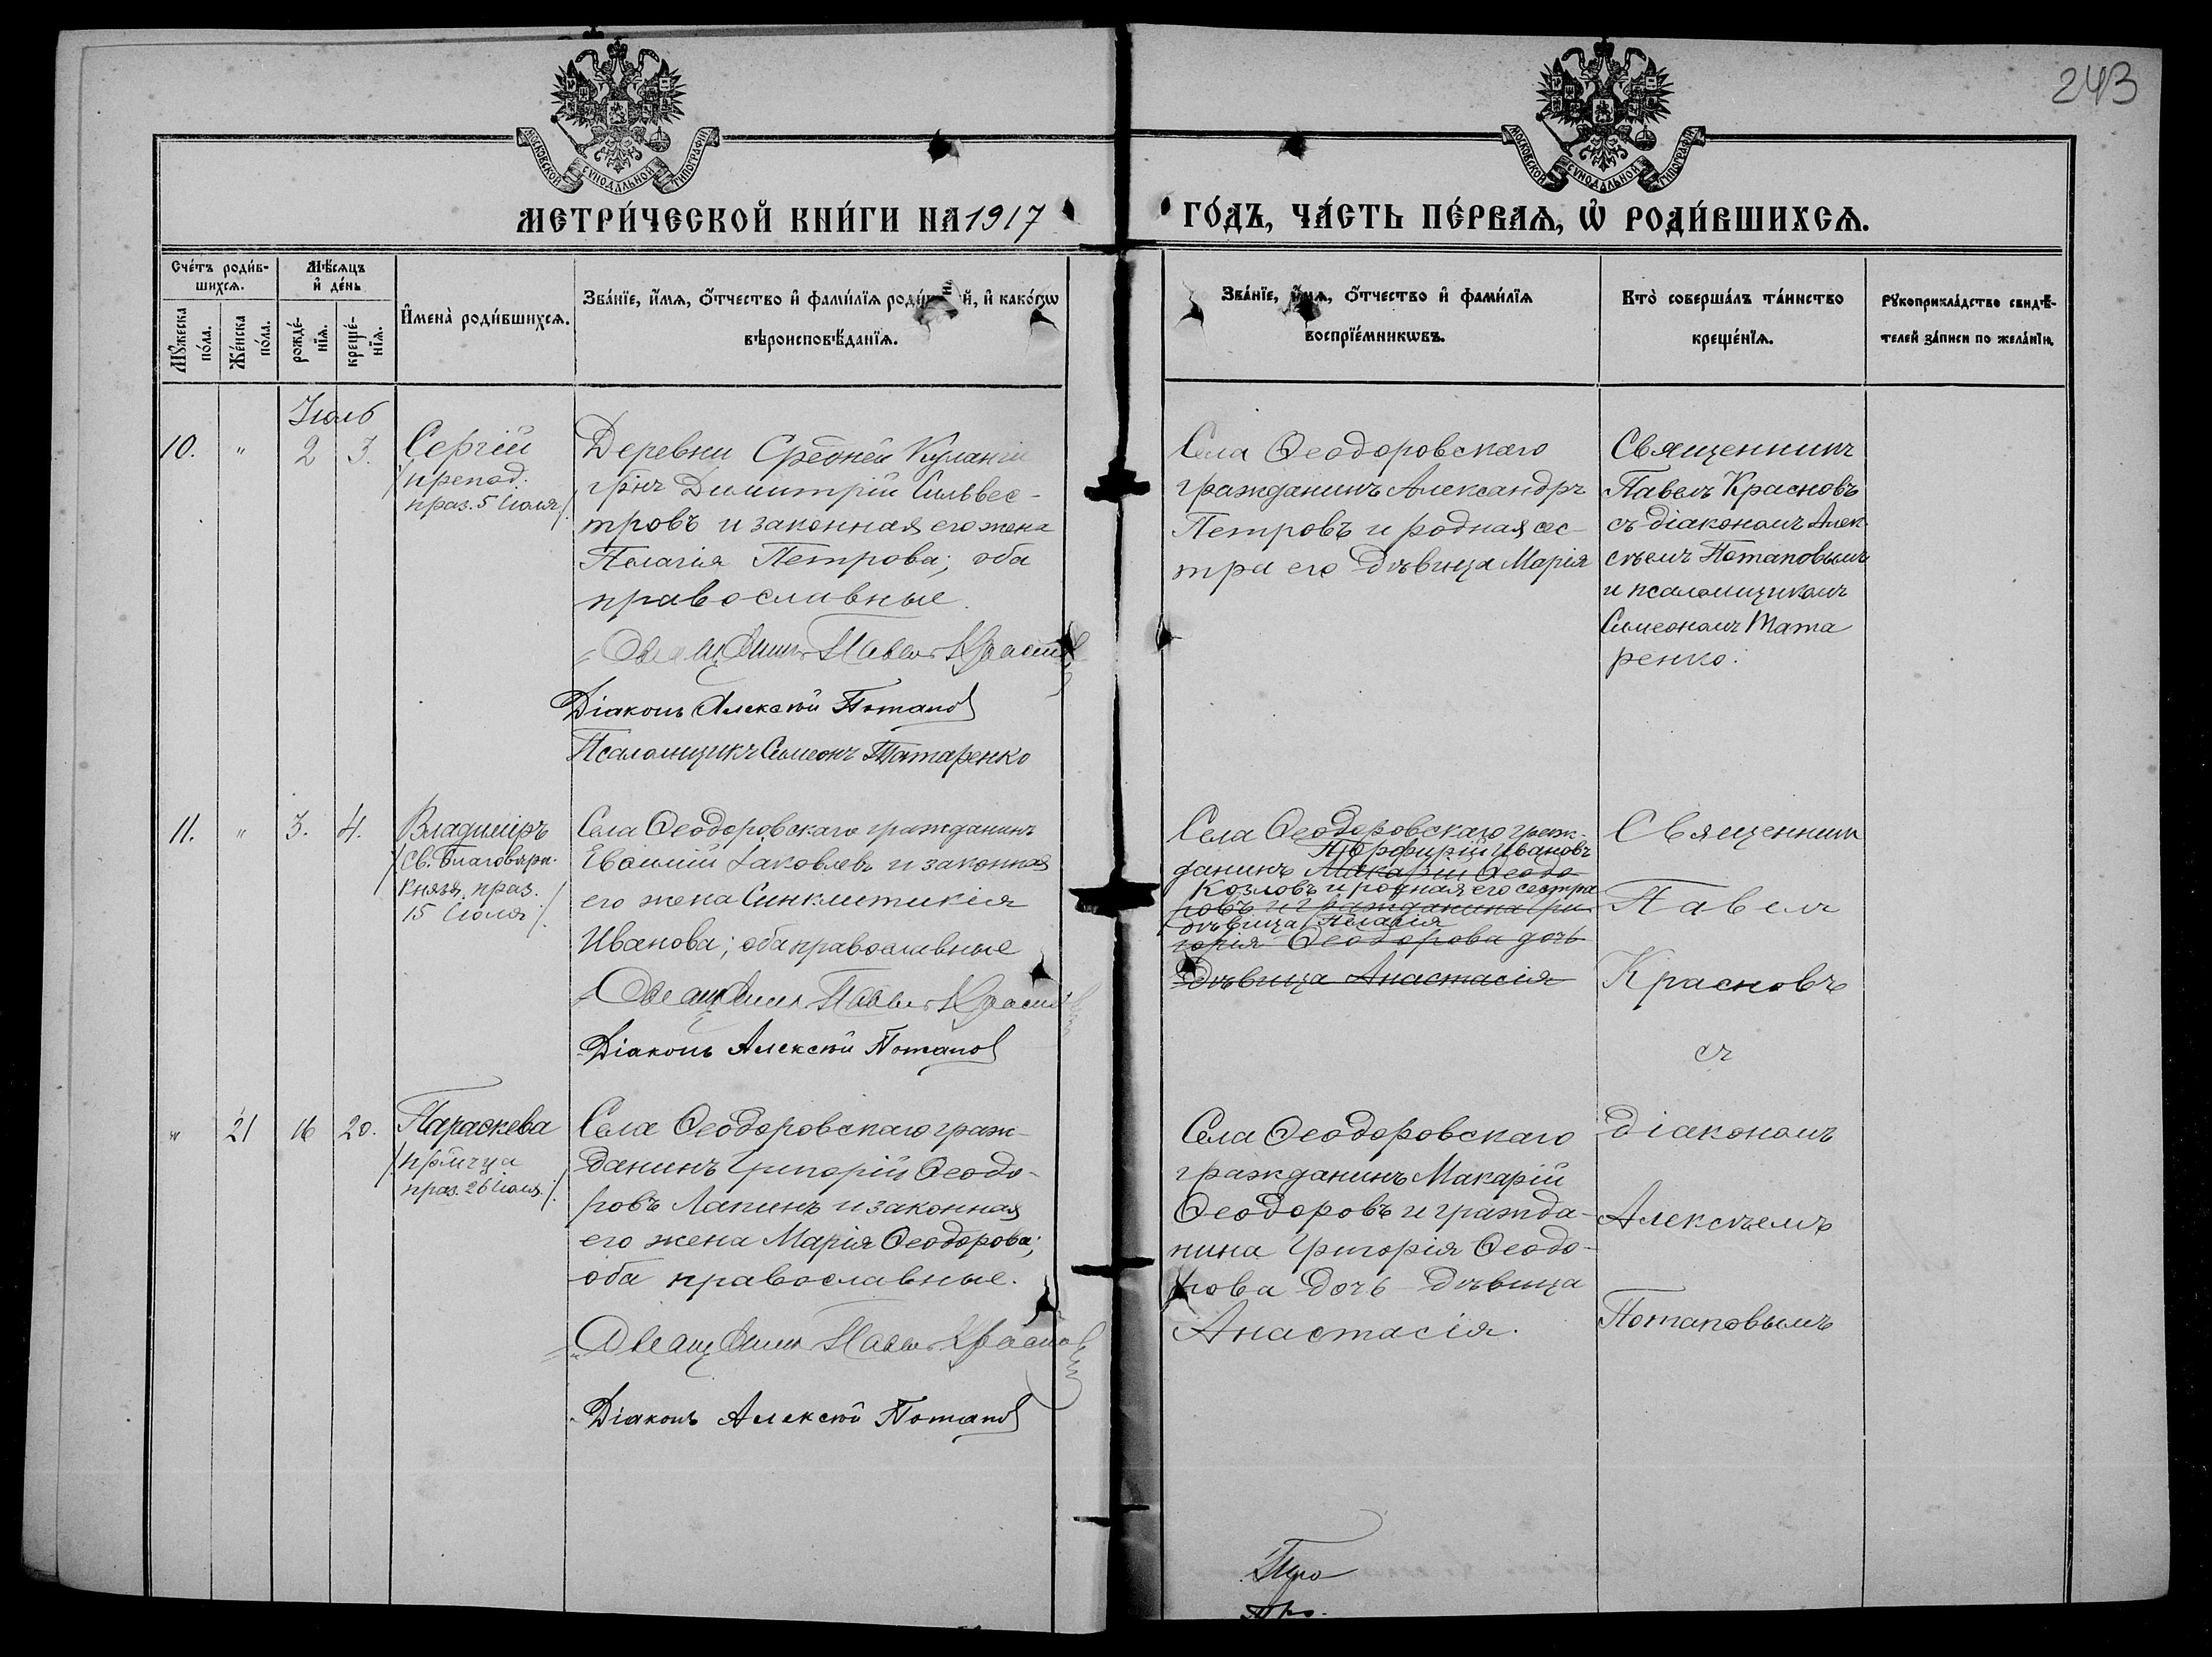 243
МОСКОВСКОЙ СѴНОДАЛЬНОЙ ТИПОГРАФІИ
МОСКОВСКОЙ СѴНОДАЛЬНОЙ ТИПОГРАФІИ
МЕТРИ́ЧЕСКОЙ КНИ́ГИ НА 1917
ГО́ДЪ, ЧА́СТЬ ПЕ́РВАѦ, Ѡ҆ РОДИ́ВШИХСѦ.
Сче́тъ роди́в-
шихсѧ.
Мꙋжеска
по́ла.
Же́нска
по́ла.
Мѣ́сѧцъ
и҆ де́нь
рожде́-
нїѧ.
креще́-
нїѧ.
И҆мена̀ роди́вшихсѧ.
Зва́нїе, и҆́мѧ, ѻ҆́тчество и҆ фами́лїѧ роди́ й, и҆ како́гѡ
вѣроисповѣ́данїѧ.
Зва́нїе, и҆́мѧ, ѻ҆́тчество и҆ фами́лїѧ
воспрїе́мникѡвъ.
Кто̀ соверша́лъ та́инство
креще́нїѧ.
Рꙋкоприкла́дство свидѣ́-
телей за́писи по жела́нїю.
Іюль
10.
"
2
3.
Сергій
/препод.
праз. 5 Іюля/.
Деревни Средней Куланги
гр̃нъ Димитрій Сильвес-
тровъ и законная его жена
Пелагія Петрова; оба
православные.
Священникъ Павелъ Красновъ
Діаконъ Алексѣй Потапов
Псаломщикъ Симеонъ Татаренко
Села Ѳеодоровскаго
гражданинъ Александръ
Петровъ и родная сес-
тра его дѣвица Марія
Священникъ
Павелъ Красновъ
съ діакономъ Алек
сѣемъ Потаповымъ
и псаломщикомъ
Симеономъ Тата
ренко.
11.
"
3.
4.
Владиміръ
/св. благовѣрн.
князя, праз.
15 Іюля/.
Села Ѳеодоровскаго гражданинъ
Евѳимій Іаковлевъ и законная
его жена Синклитикія
Иванова; оба православные
Священникъ Павелъ Красновъ
Діаконъ Алексѣй Потапов
Села Ѳеодоровскаго граж-
Порфирій Ивановъ
данинъ Макарій Ѳеодо-
Козловъ и родная его сестра
ровъ и гражданина Гри-
дѣвица Пелагія
горія Ѳеодорова дочь
дѣвица Анастасія
Священник
Павелъ
Красновъ
съ
"
21
16
20.
Параскева
/прмчца
праз. 26 Іюля./.
Села Ѳеодоровскаго граж-
данинъ Григорій Ѳеодо-
ровъ Лапинъ и законная
его жена Марія Ѳеодорова;
оба православные.
Священникъ Павелъ Красновъ
Діаконъ Алексѣй Потапов
Села Ѳеодоровскаго
гражданинъ Макарій
Ѳеодоровъ и гражда-
нина Григорія Ѳеодо-
рова дочь дѣвица
Анастасія.
діакономъ
Алексѣемъ
Потаповымъ